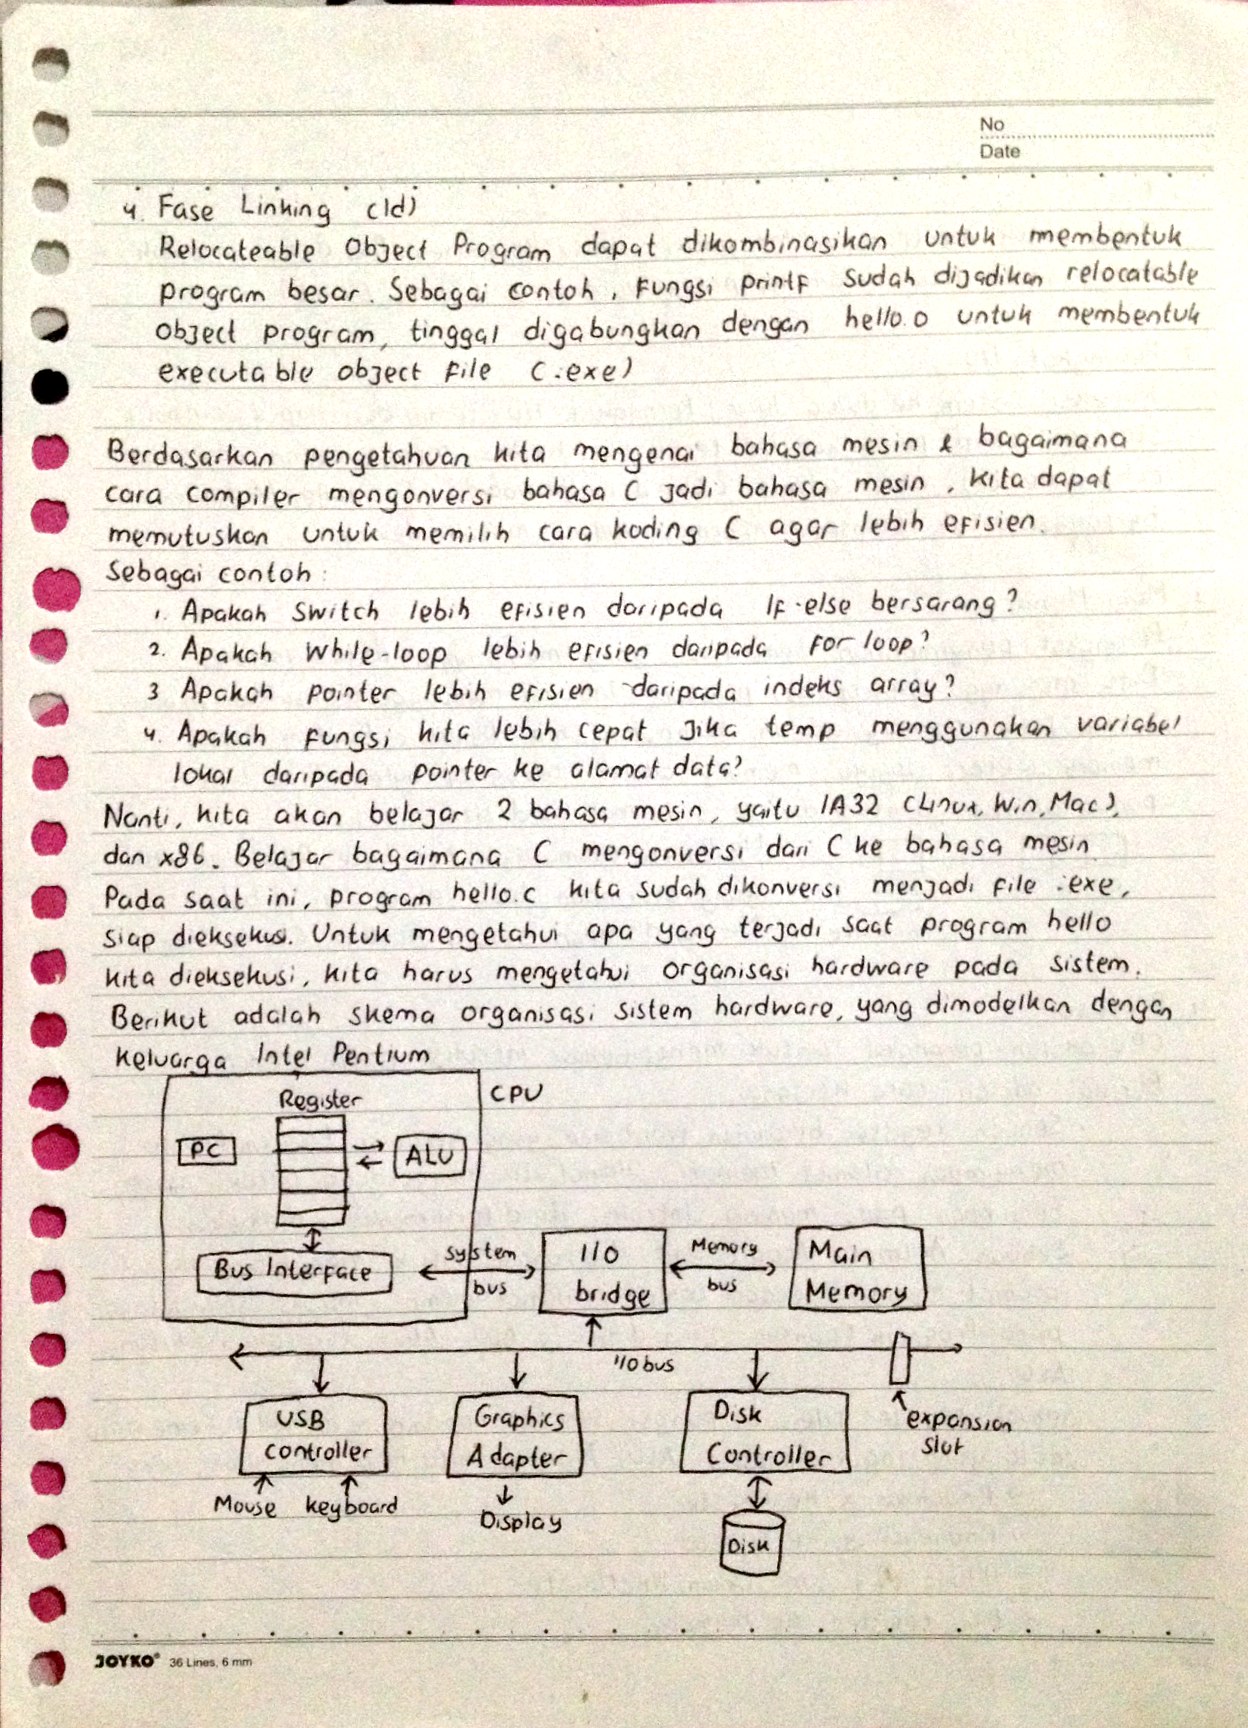 No
Date
4. Fase Linking (ld)
Relocateable Object Program dapat dikombinasikan untuk membentuk
program besar. Sebagai contoh, fungsi printf sudah dijadikan relocatable
object program, tinggal digabungkan dengan hello.o untuk membentuk
executable object file (.exe)
Berdasarkan pengetahuan kita mengenai bahasa mesin & bagaimana
cara compiler mengonversi bahasa C jadi bahasa mesin, kita dapat
memutuskan untuk memilih cara koding C agar lebih efisien.
Sebagai contoh:
1. Apakah switch lebih efisien daripada If-else bersarang?
2. Apakah while-loop lebih efisien daripada for loop?
3 Apakah pointer lebih efisien daripada indeks array?
4. Apakah fungsi kita lebih cepat jika temp menggunakan variabel
lokal daripada pointer ke alamat data?
Nanti, kita akan belajar 2 bahasa mesin, yaitu IA32 (Linux, Win, Mac),
dan x86. Belajar bagaimana C mengonversi dari C ke bahasa mesin.
Pada saat ini, program hello.c kita sudah dikonversi menjadi file .exe,
siap dieksekusi. Untuk mengetahui apa yang terjadi saat program hello
kita dieksekusi, kita harus mengetahui organisasi hardware pada sistem.
Berikut adalah skema organisasi sistem hardware, yang dimodelkan dengan
keluarga Intel Pentium
CPU
Register
PC
ALU
Bus Interface
system
bus
I/O
bridge
Memory
bus
Main
Memory
I/O bus
USB
controller
Graphics
Adapter
Disk
Controller
expansion
slot
Mouse
keyboard
Display
Disk
JOYKO® 36 Lines, 6 mm